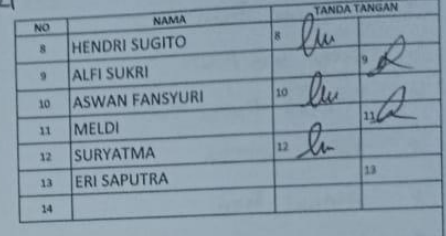 NO NAMA TANDA TANGAN
8 HENDRI SUGITO 8
9 ALFI SUKRI 9
10 ASWAN FANSYURI 10
11 MELDI 11
12 SURYATMA 12
13 ERI SAPUTRA 13
14